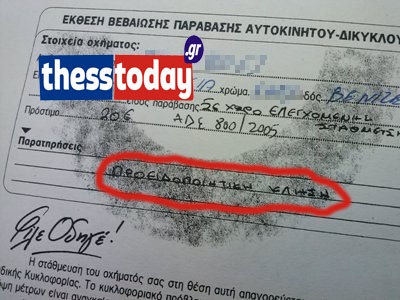 ΕΚΘΕΣΗ ΒΕΒΑΙΩΣΗΣ ΠΑΡΑΒΑΣΗΣ ΑΥΤΟΚΙΝΗΤΟΥ-ΔΙΚΥΚΛΟΥ
Στοιχεία οχήματος:
.gr
thesstoday
χρώμα. δός. ΒΕΝΙΖΕ
είδος παράβασης Σε χώρο ΕΛΕΓΧΟΜΕΝΗ
ΣΤΑΘΜΕΥΣΗ
Πρόστιμο 20 € ΑΔΣ 800/2005
Παρατηρήσεις
ΠΡΟΕΙΔΟΠΟΙΗΤΙΚΗ ΚΛΗΣΗ
Φίλε Οδηγέ!
Η στάθμευση του οχήματός σας στη θέση αυτή απαγορεύεται
δικής Κυκλοφορίας. Το κυκλοφοριακό
μέτρων είναι